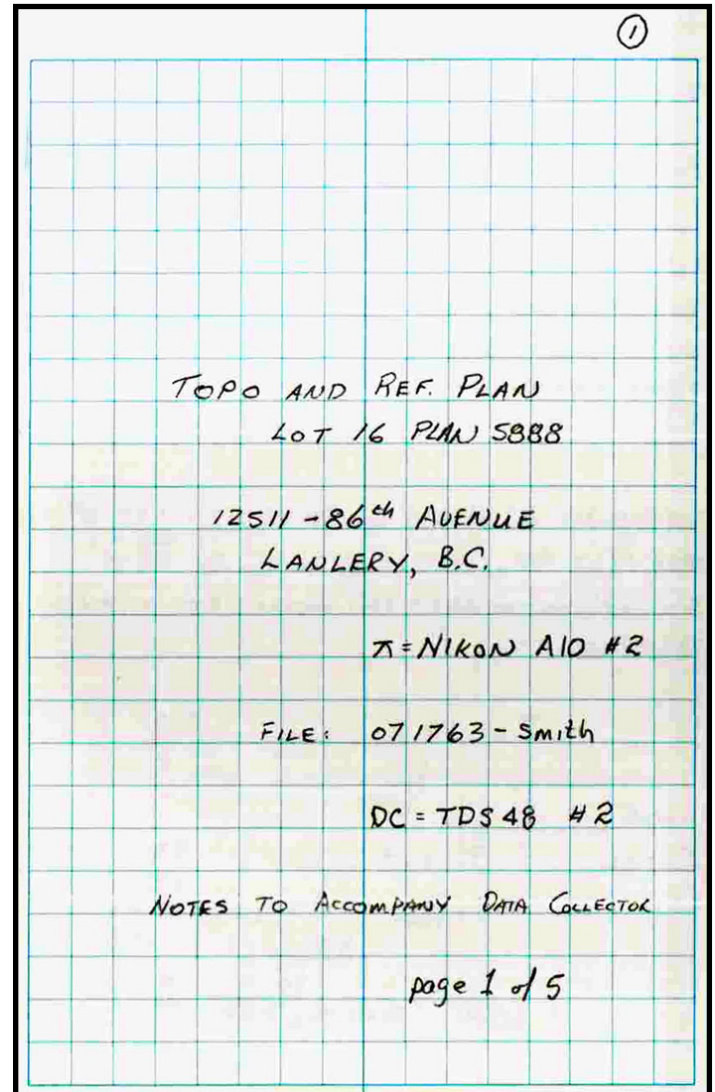 1
TOPO AND REF. PLAN
LOT 16 PLAN 5888
12511 - 86th AVENUE
LANLERY, B.C.
π = NIKON A10 #2
FILE: 071763 - Smith
DC = TDS 48 #2
NOTES TO ACCOMPANY DATA COLLECTOR
page 1 of 5